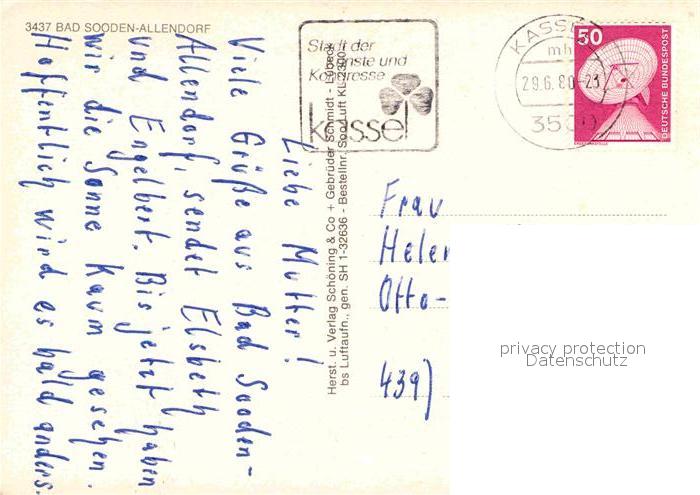 3437 BAD SOODEN-ALLENDORF
Liebe Mutter!
Viele Grüße aus Bad Sooden-
Allendorf, sendet Elsbeth
und Engelbert. Bis jetzt haben
wir die Sonne kaum gesehen.
Hoffentlich wird es bald anders.
Herst. u. Verlag Schöning & Co + Gebrüder Schmidt - Lübeck
bs Luftaufn., gen. SH 1-32636 - Bestellnr. Soo Luft KL 2300
Stadt der
Künste und
Kongresse
kassel
KASSEL
mh
29.6.80-23
3500
50
DEUTSCHE BUNDESPOST
Frau
Helen
Otto-
439)
privacy protection
Datenschutz